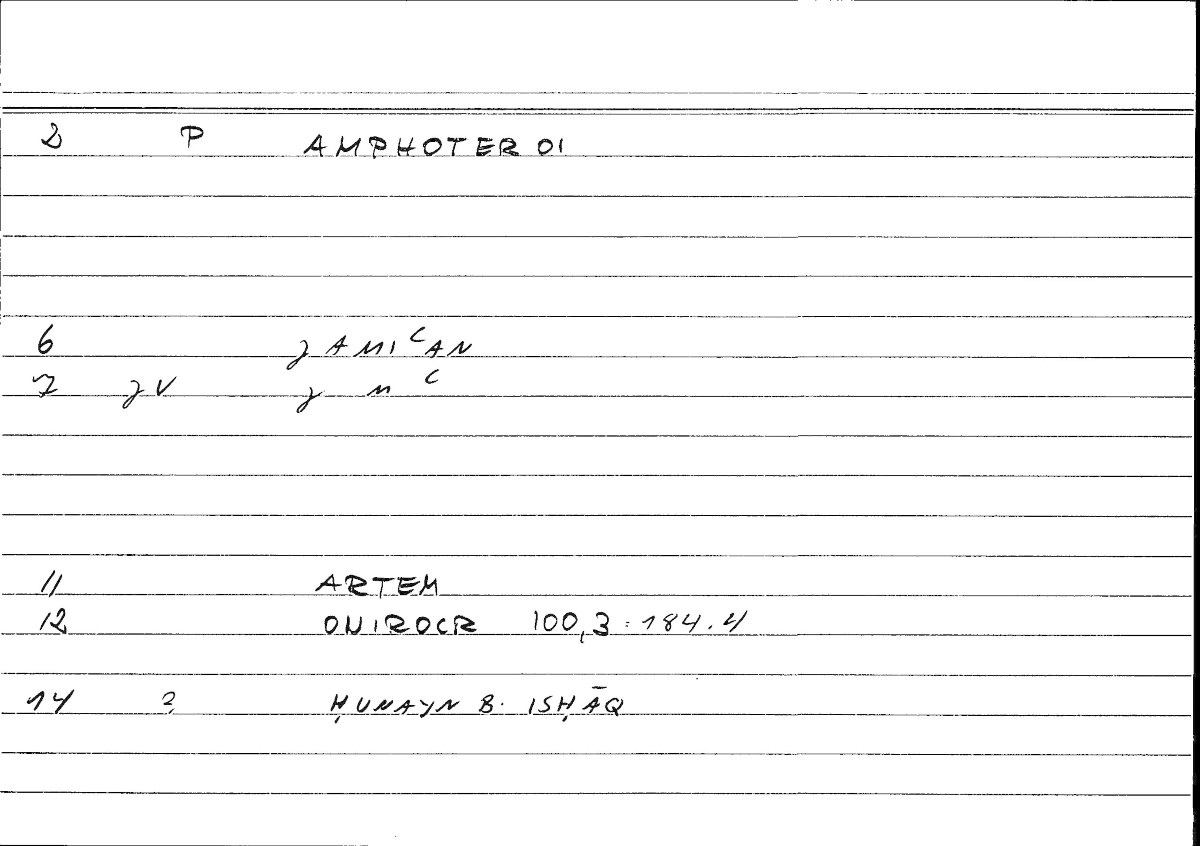 2 P AMPHOTEROI
6 ǧAMIʿAN
7 ǧV ǧ m ʿ
11 ARTEM
12 ONIROCR 100,3 : 184.4
14 ? ḤUNAYN B. ISḤĀQ